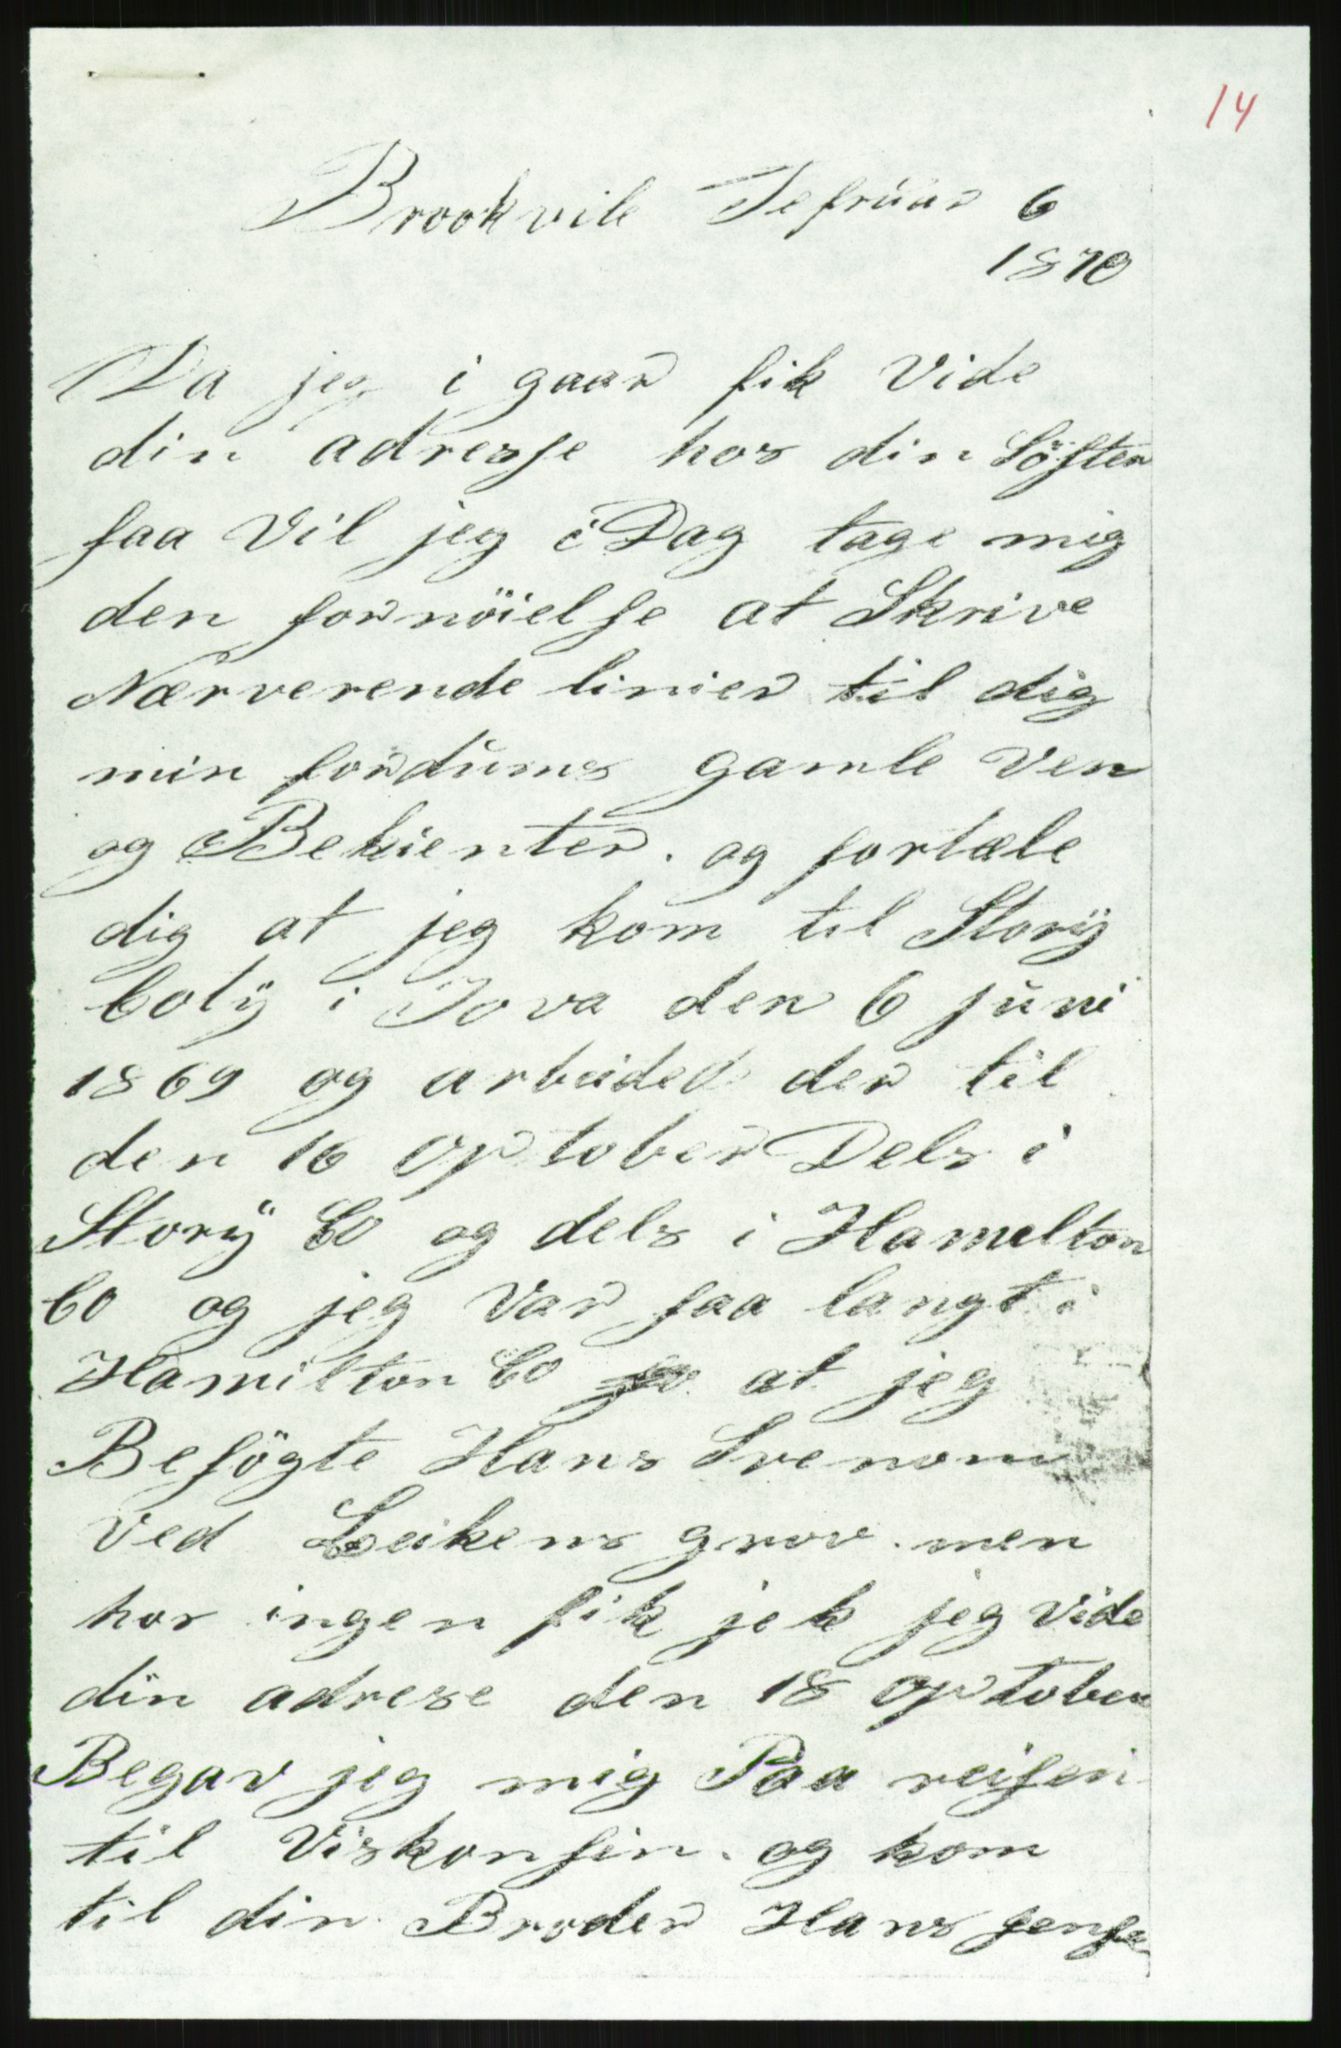 14
Brookvile Fefruar 6
1870
Da jeg i gaar fik Vide
din adresse hos din Söster
saa Vil jeg i Dag tage mig
den fornöielse at Skrive
Nærverende linier til dig
min fordums gamle Ven
og Bekienter. og fortæle
dig at jeg kom til Story
Coty i Iova den 6 juni
1869 og arbeided der til
den 16 October Dels i
Story Co og dels i Hamelton
Co og jeg Var saa langt i
Hamilton Co at jeg
Besögte Hans
Ved Leikens grov. men
hos ingen fik jek jeg Vide
din adrese den 18 October
Begav jeg mig Paa reisen
til Viskonsin. og kom
til din Broder Hans Jense